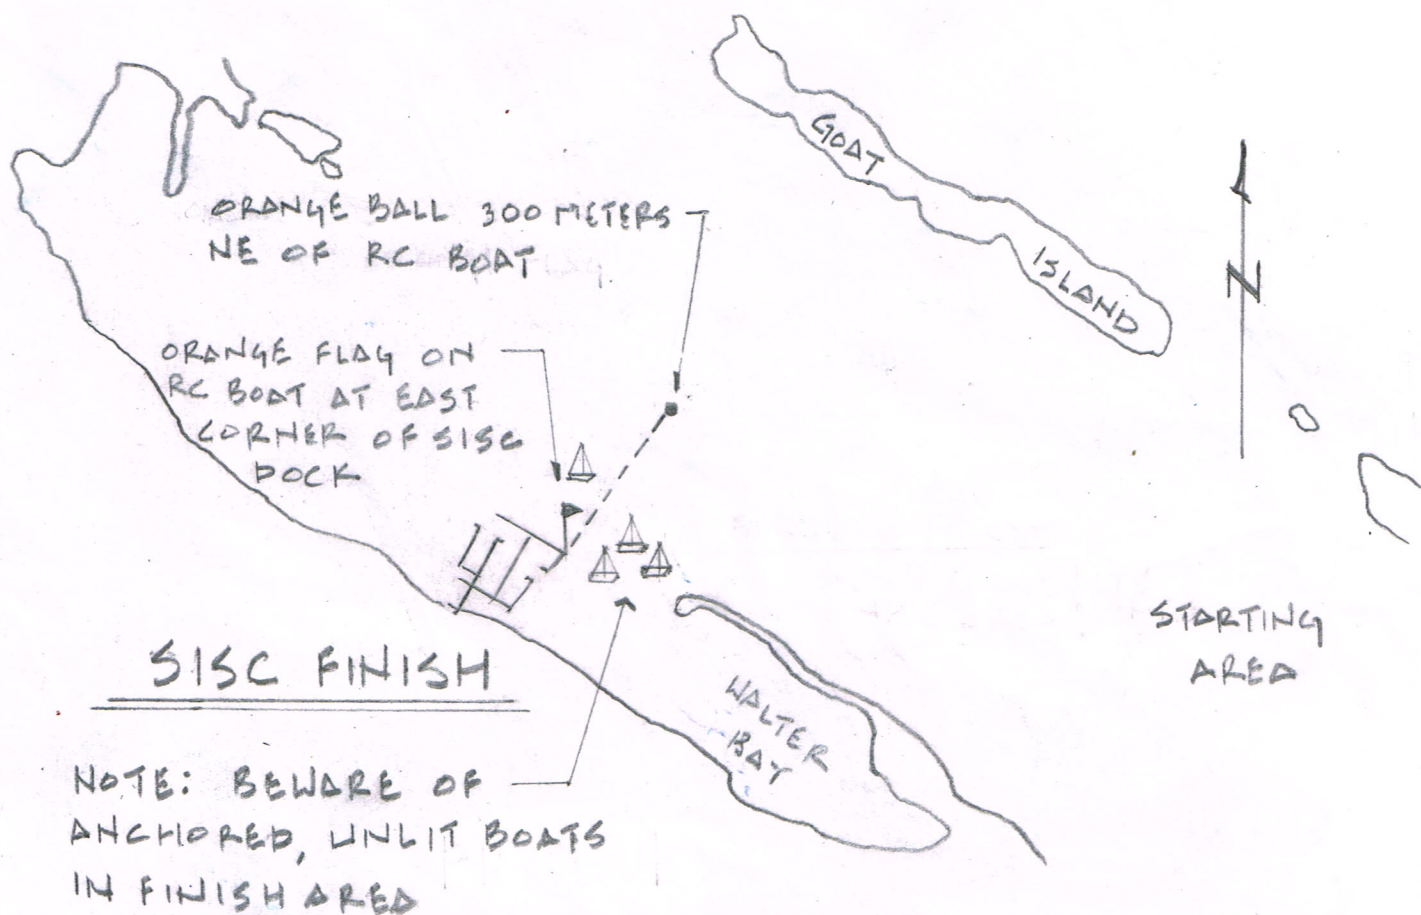 GOAT
ISLAND
N
ORANGE BALL 300 METERS
NE OF RC BOAT
ORANGE FLAG ON
RC BOAT AT EAST
CORNER OF SISC
DOCK
STARTING
AREA
SISC FINISH
WALTER
BAY
NOTE: BEWARE OF
ANCHORED, UNLIT BOATS
IN FINISH AREA